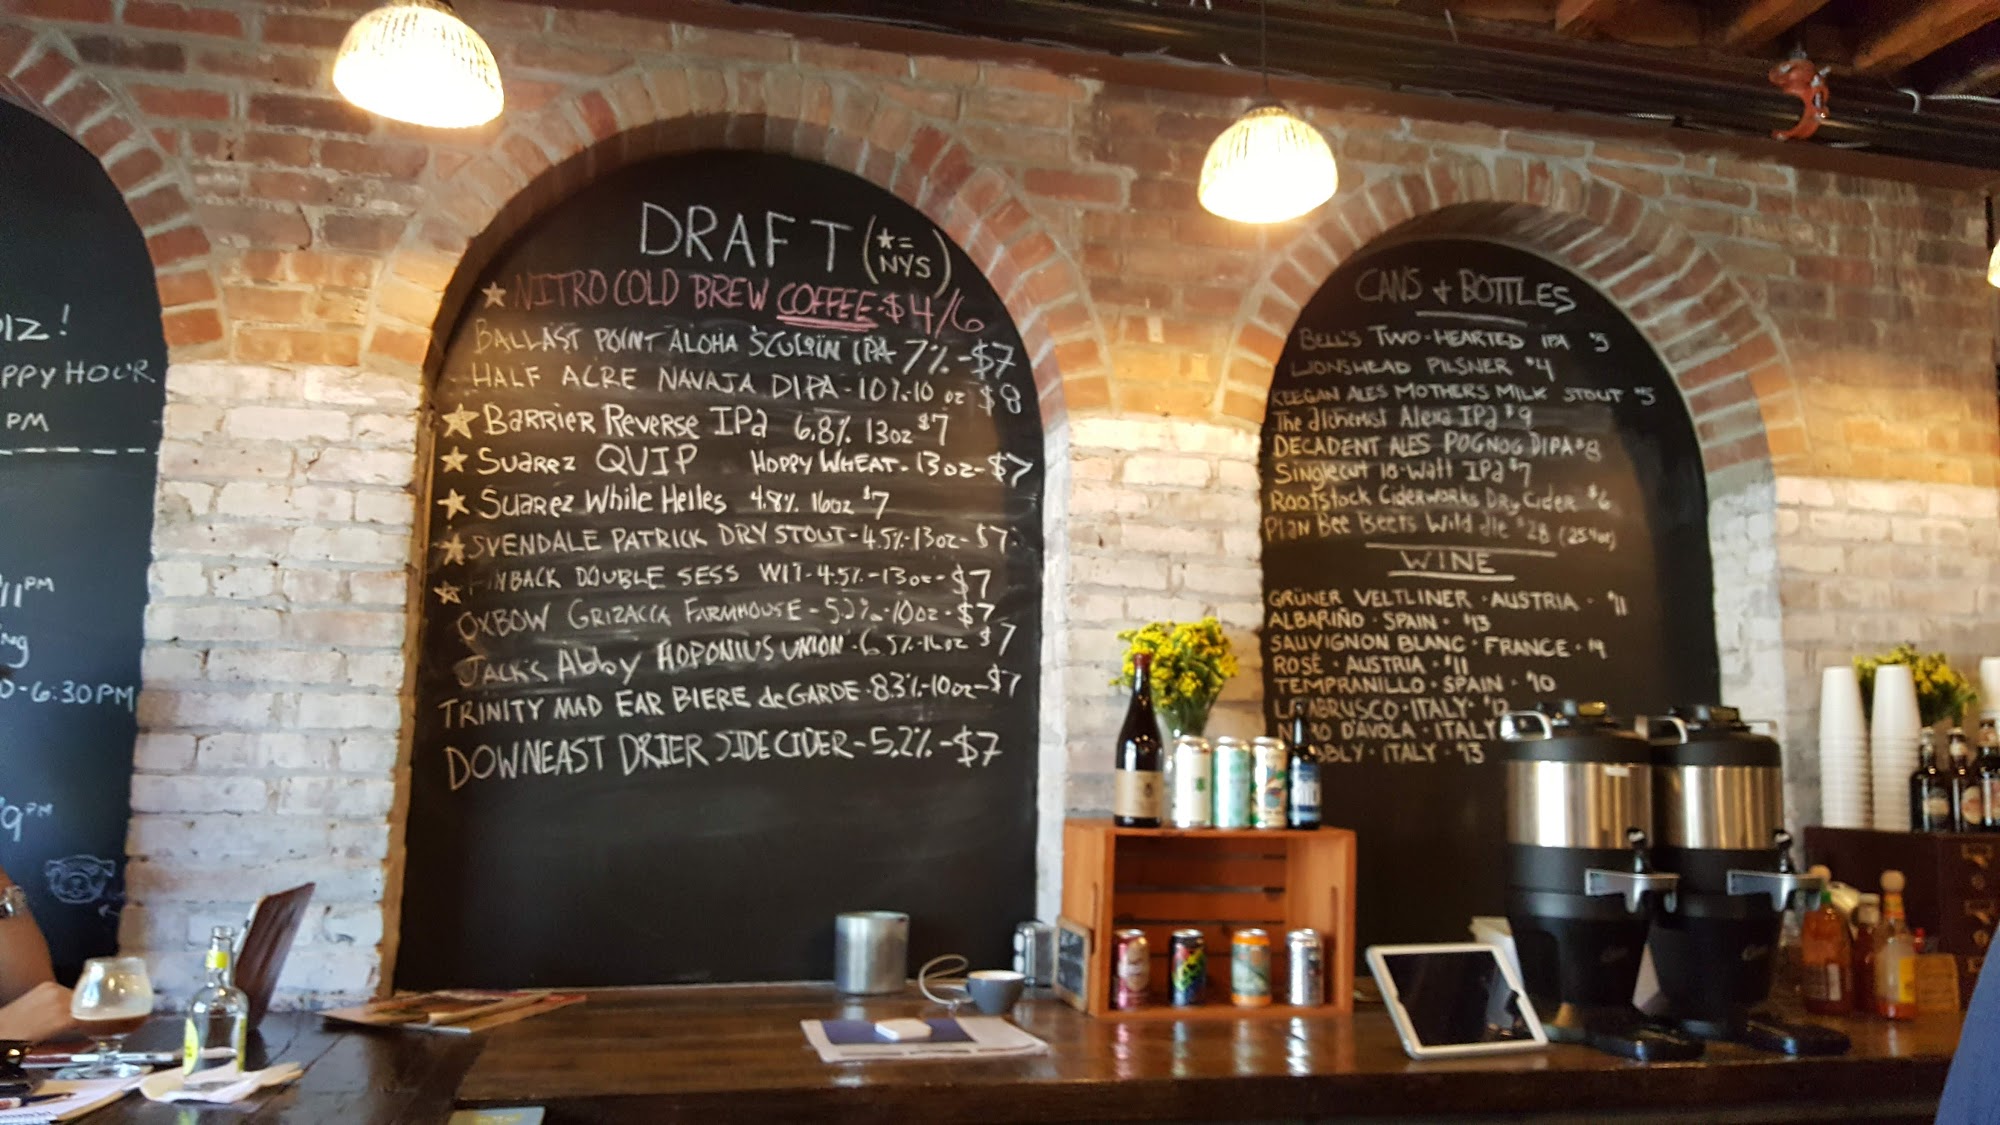 IZ!
PPY HOUR
PM
11PM
ng
0-6:30PM
9PM
DRAFT (★= NYS)
★ NITRO COLD BREW COFFEE-$4/6
BALLAST POINT ALOHA SCULPIN IPA 7%-$7
HALF ACRE NAVAJA DIPA-10%-10oz $8
★ BARRIER REVERSE IPa 6.8% 13oz $7
★ Suarez QUIP HOPPY WHEAT-13oz-$7
★ Suarez While Helles 4.8% 16oz $7
★ SVENDALE PATRICK DRY STOUT-4.5%-13oz-$7
★ FINBACK DOUBLE SESS WIT-4.5%-13oz-$7
OXBOW GRIZACCA FARMHOUSE-5.2%-10oz-$7
JACK'S Abby HOPONIUS UNION-6.5%-16oz $7
TRINITY MAD EAR BIERE de GARDE-8.3%-10oz-$7
DOWNEAST DRIER SIDE CIDER-5.2%-$7
CANS + BOTTLES
BELL'S TWO-HEARTED IPA $5
LIONSHEAD PILSNER $4
KEEGAN ALES MOTHER'S MILK STOUT $5
The alchemist Alexa IPa $9
DECADENT ALES POGNOG DIPA $8
Singlecut 18-Watt IPa $7
Rootstock Ciderworks Dry Cider $6
Plan Bee Beets Wild ale $28
WINE
GRÜNER VELTLINER · AUSTRIA · $11
ALBARIÑO · SPAIN · $13
SAUVIGNON BLANC · FRANCE ·
ROSÉ · AUSTRIA · $11
TEMPRANILLO · SPAIN · $10
LAMBRUSCO · ITALY · $12
NERO D'AVOLA · ITALY
BBLY · ITALY · $13